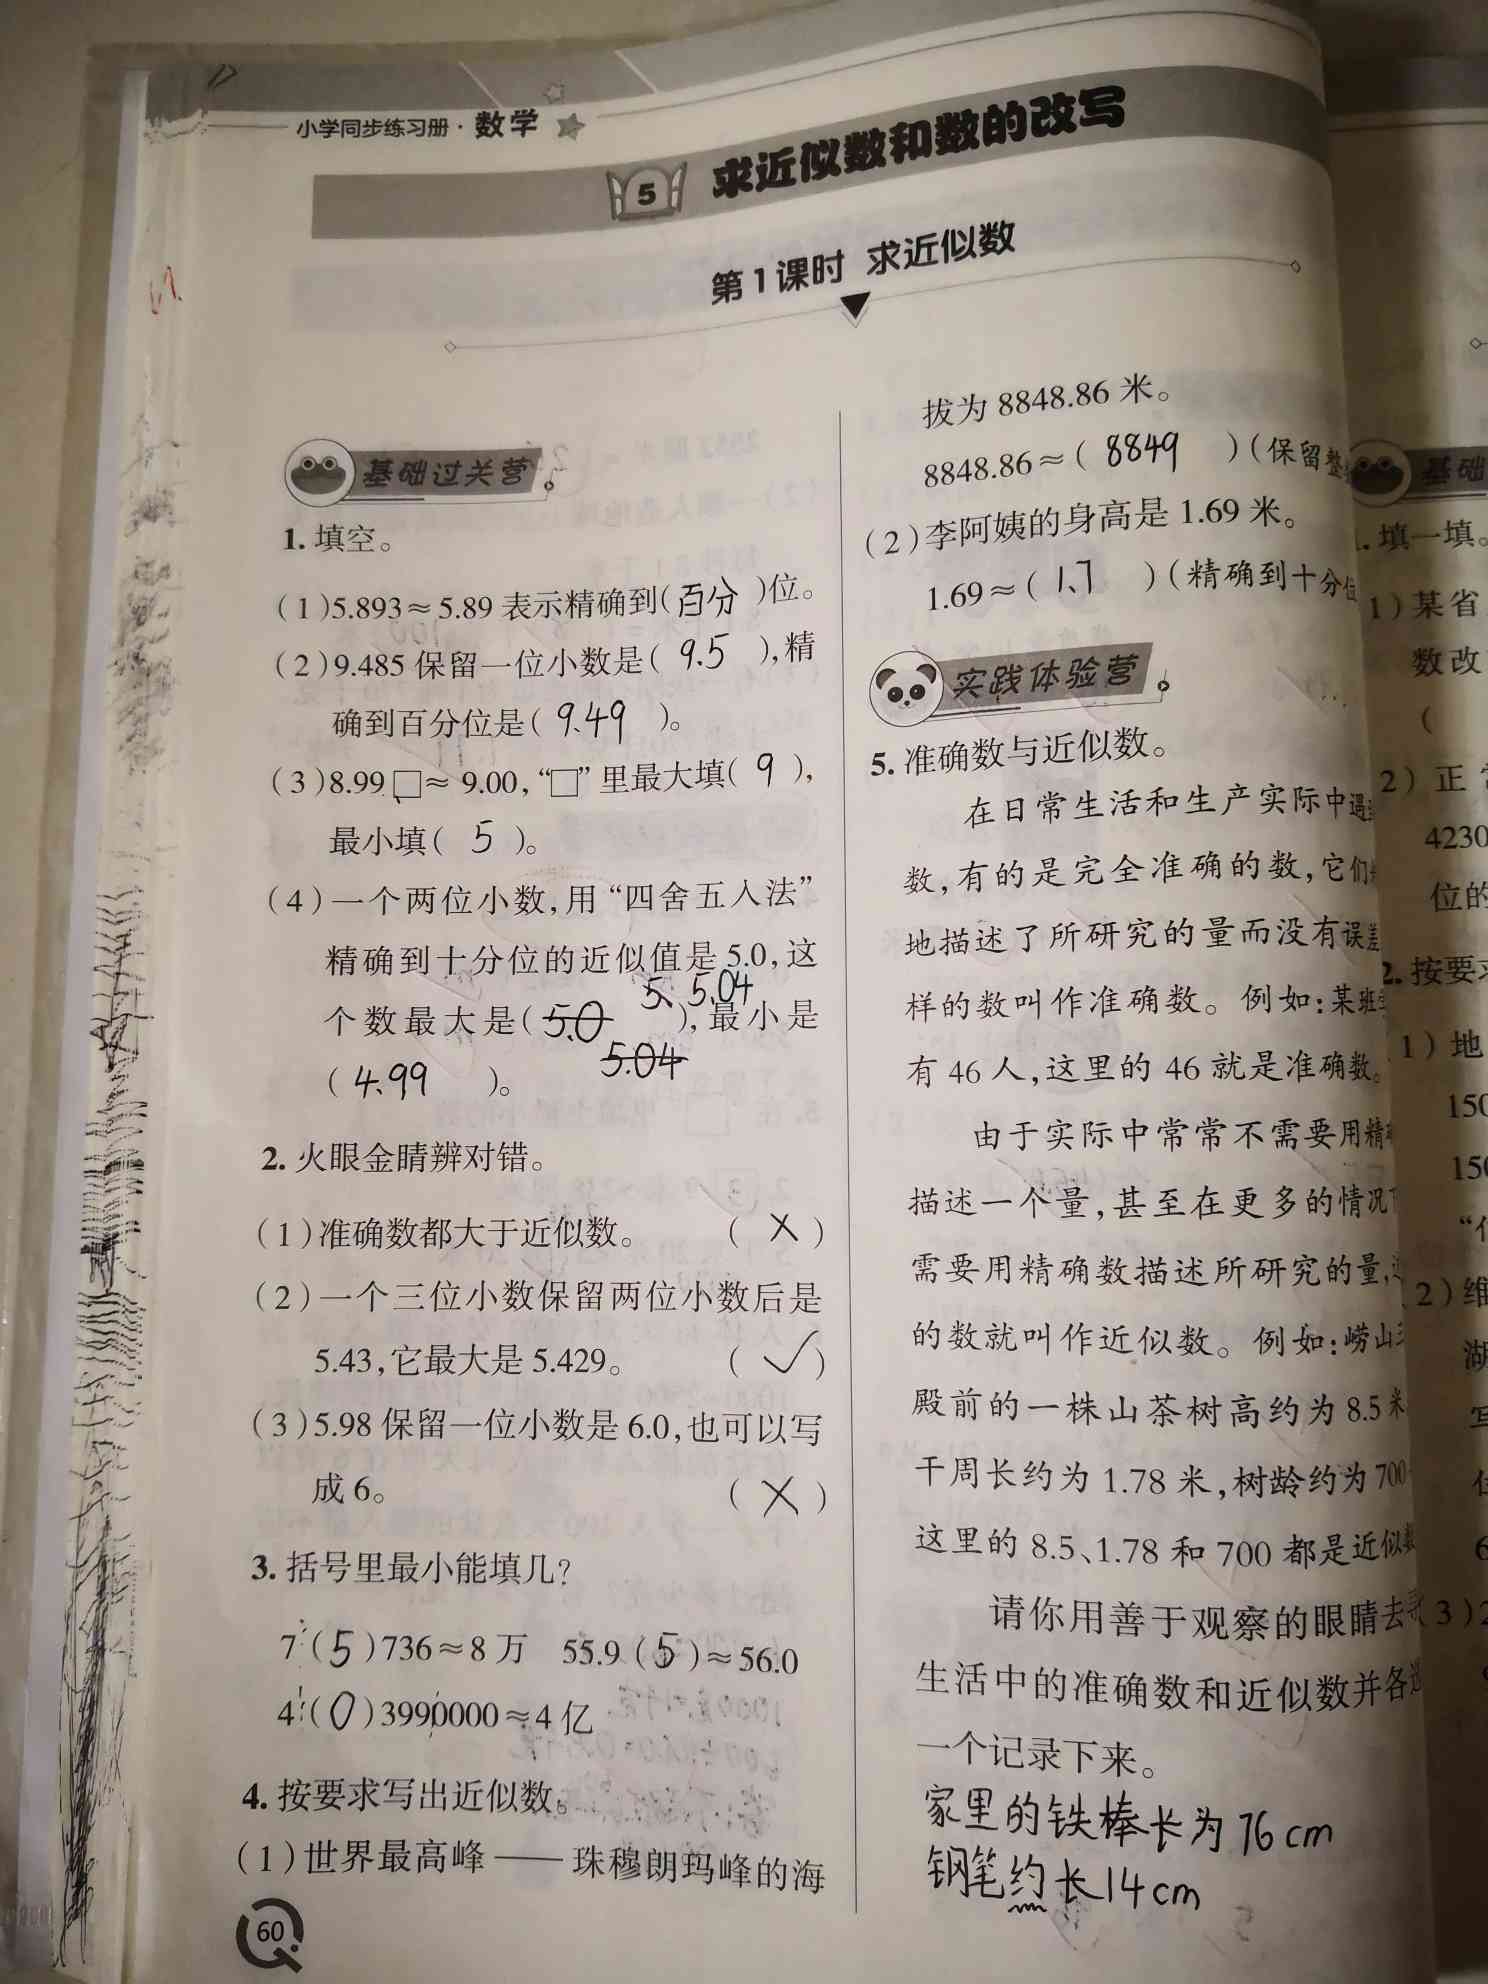 小学同步练习册·数学
5 求近似数和数的改写
第1课时 求近似数
基础过关营
1. 填空。
(1)5.893≈5.89表示精确到(百分)位。
(2)9.485保留一位小数是( 9.5 ),精
确到百分位是( 9.49 )。
(3)8.99□≈9.00,“□”里最大填( 9 ),
最小填( 5 )。
(4)一个两位小数,用“四舍五入法”
精确到十分位的近似值是5.0,这
5. 5.04
个数最大是( 5.0 ),最小是
5.04
( 4.99 )。
2. 火眼金睛辨对错。
(1)准确数都大于近似数。 ( × )
(2)一个三位小数保留两位小数后是
5.43,它最大是5.429。 ( ✓ )
(3)5.98保留一位小数是6.0,也可以写
成6。 ( × )
3. 括号里最小能填几?
7(5)736≈8万 55.9(5)≈56.0
4(0)3990000≈4亿
4. 按要求写出近似数。
(1)世界最高峰——珠穆朗玛峰的海
60
拔为8848.86米。
8848.86≈( 8849 )(保留整
(2)李阿姨的身高是1.69米。
1.69≈( 1.7 )(精确到十分位
实践体验营
5. 准确数与近似数。
在日常生活和生产实际中遇
数,有的是完全准确的数,它们
地描述了所研究的量而没有误差
样的数叫作准确数。例如:某班
有46人,这里的46就是准确数。
由于实际中常常不需要用精
描述一个量,甚至在更多的情况
需要用精确数描述所研究的量,
的数就叫作近似数。例如:崂山
殿前的一株山茶树高约为8.5米
干周长约为1.78米,树龄约为700
这里的8.5、1.78和700都是近似数
请你用善于观察的眼睛去
生活中的准确数和近似数并各
一个记录下来。
家里的铁棒长为76cm
钢笔约长14cm
基础
1. 填一填。
1)某省
数改
(
2)正
4230
位的
2. 按要
1)地
150
150
2)维
湖
写
6
3)2